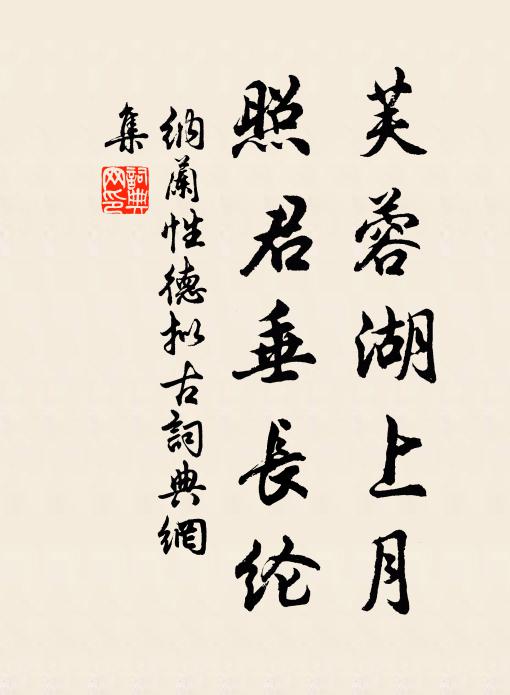 芙蓉湖上月
照君垂長纶
納蘭性德拟古詞典網
集
詞典网印